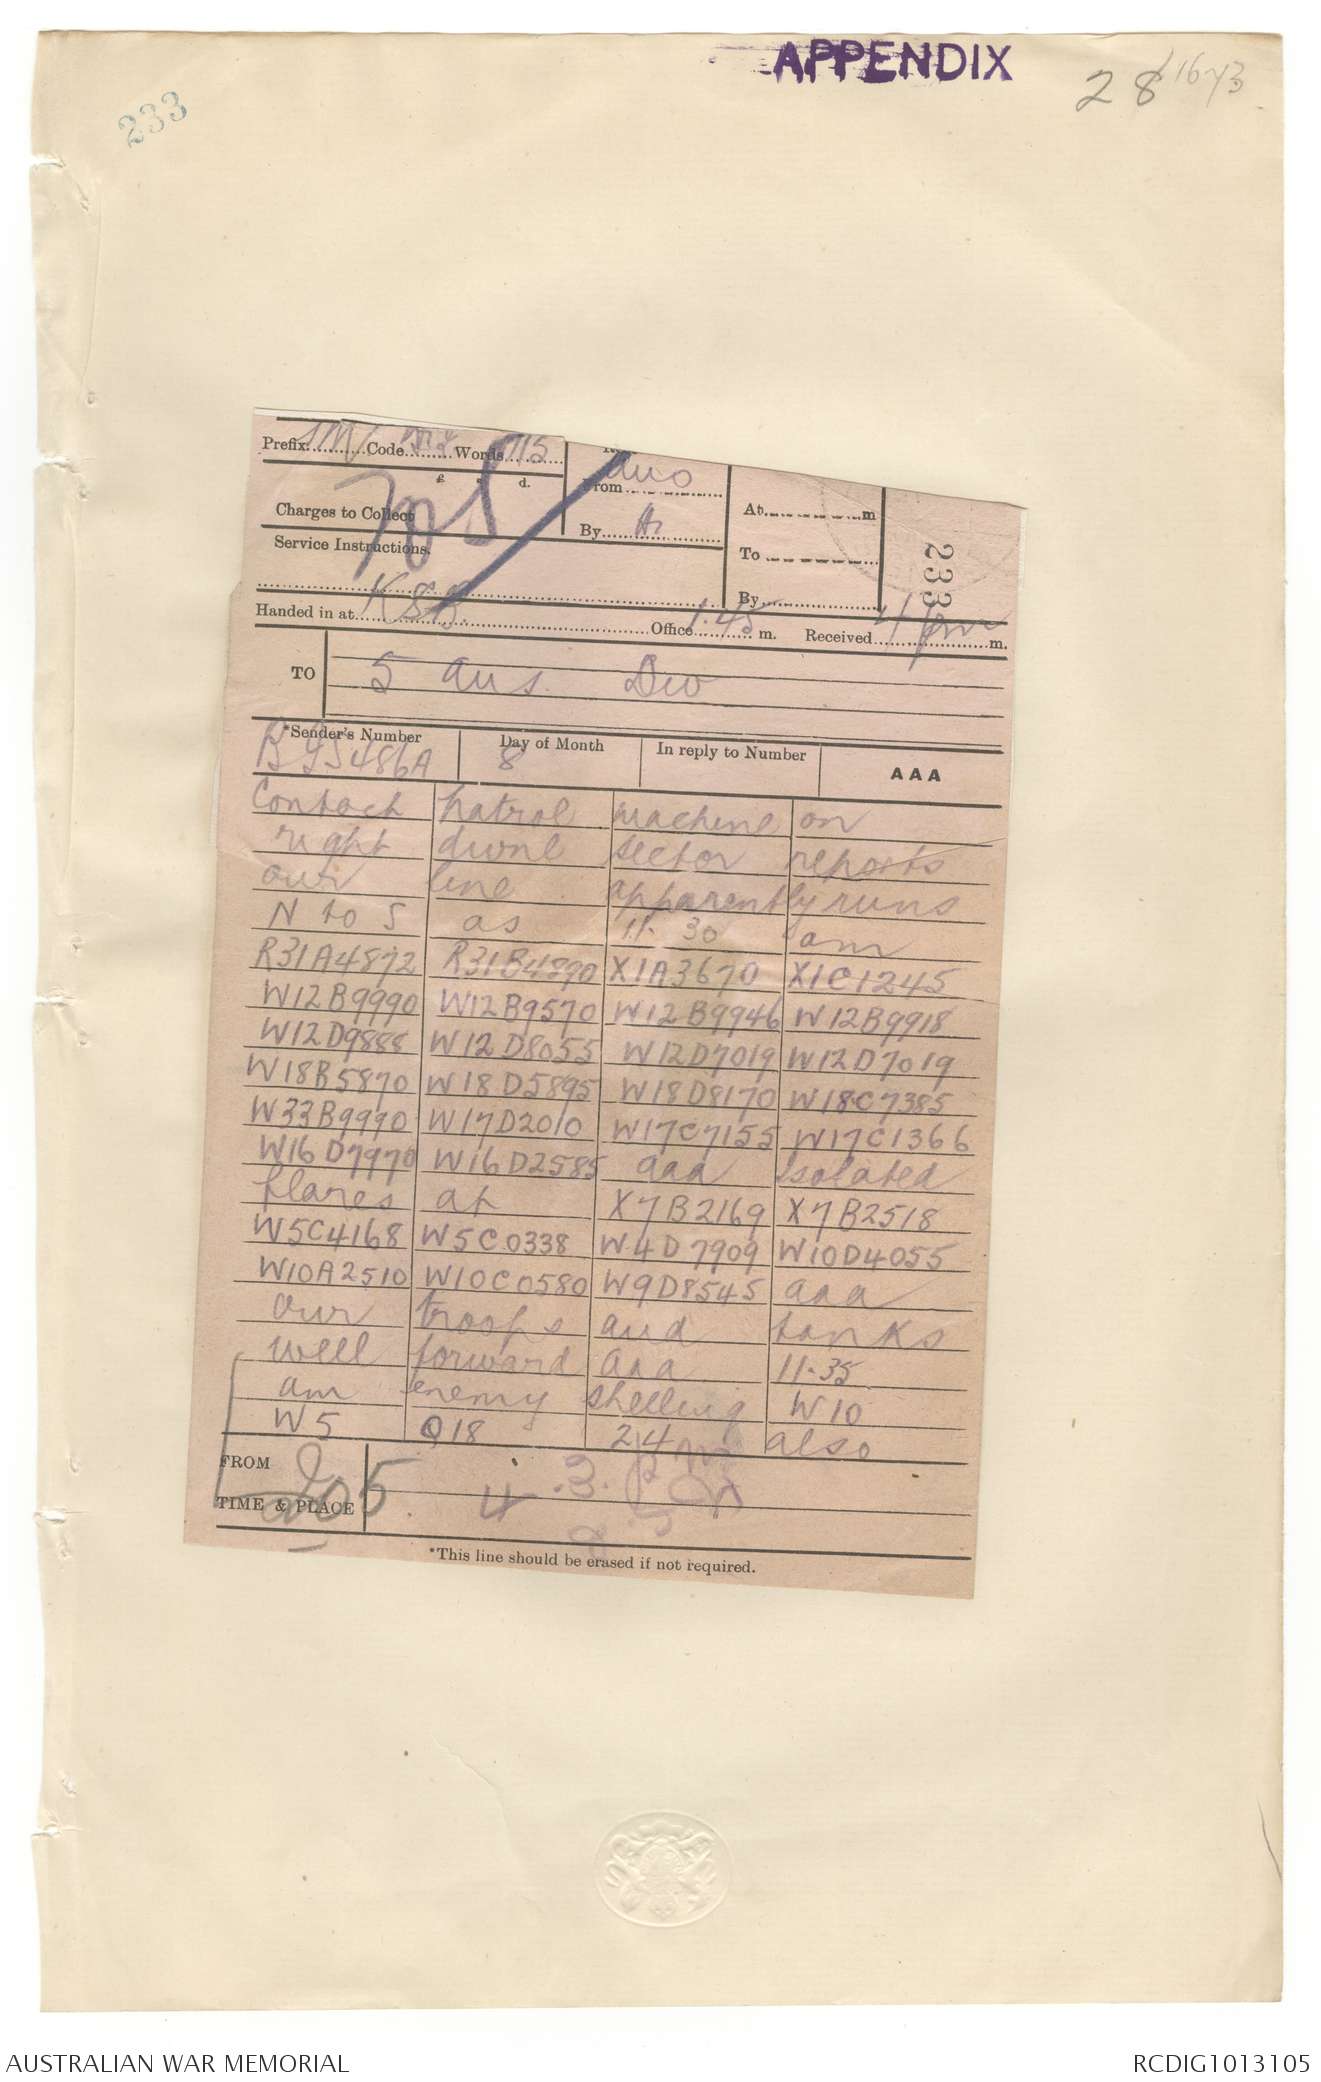 APPENDIX
28
233
Prefix SM Code Words 115
£ s. d.
Charges to Collect
Service Instructions.
From duo
By
At m
To
By
233
Handed in at KSB. Office 1.45 m. Received 4 pm m.
TO 5 Aus Div
*Sender's Number Day of Month In reply to Number AAA
BGS486A 8
Contact patrol machine on
right divnl sector reports
our line apparently runs
N to S as 11.30 am
R31A4872 R31B4890 X1A3670 X1C1245
W12B9990 W12B9570 W12B9946 W12B9918
W12D9888 W12D8055 W12D7019 W12D7019
W18B5870 W18D5895 W18D8170 W18C7385
W33B9990 W17D2010 W17C7155 W17C1366
W16D7970 W16D2585 aaa Isolated
flares at X7B2169 X7B2518
W5C4168 W5C0338 W4D7909 W10D4055
W10A2510 W10C0580 W9D8545 aaa
our troops and tanks
well forward aaa 11.35
am enemy shelling W10
W5 Q18 24 also
FROM
TIME & PLACE
*This line should be erased if not required.
AUSTRALIAN WAR MEMORIAL RCDIG1013105